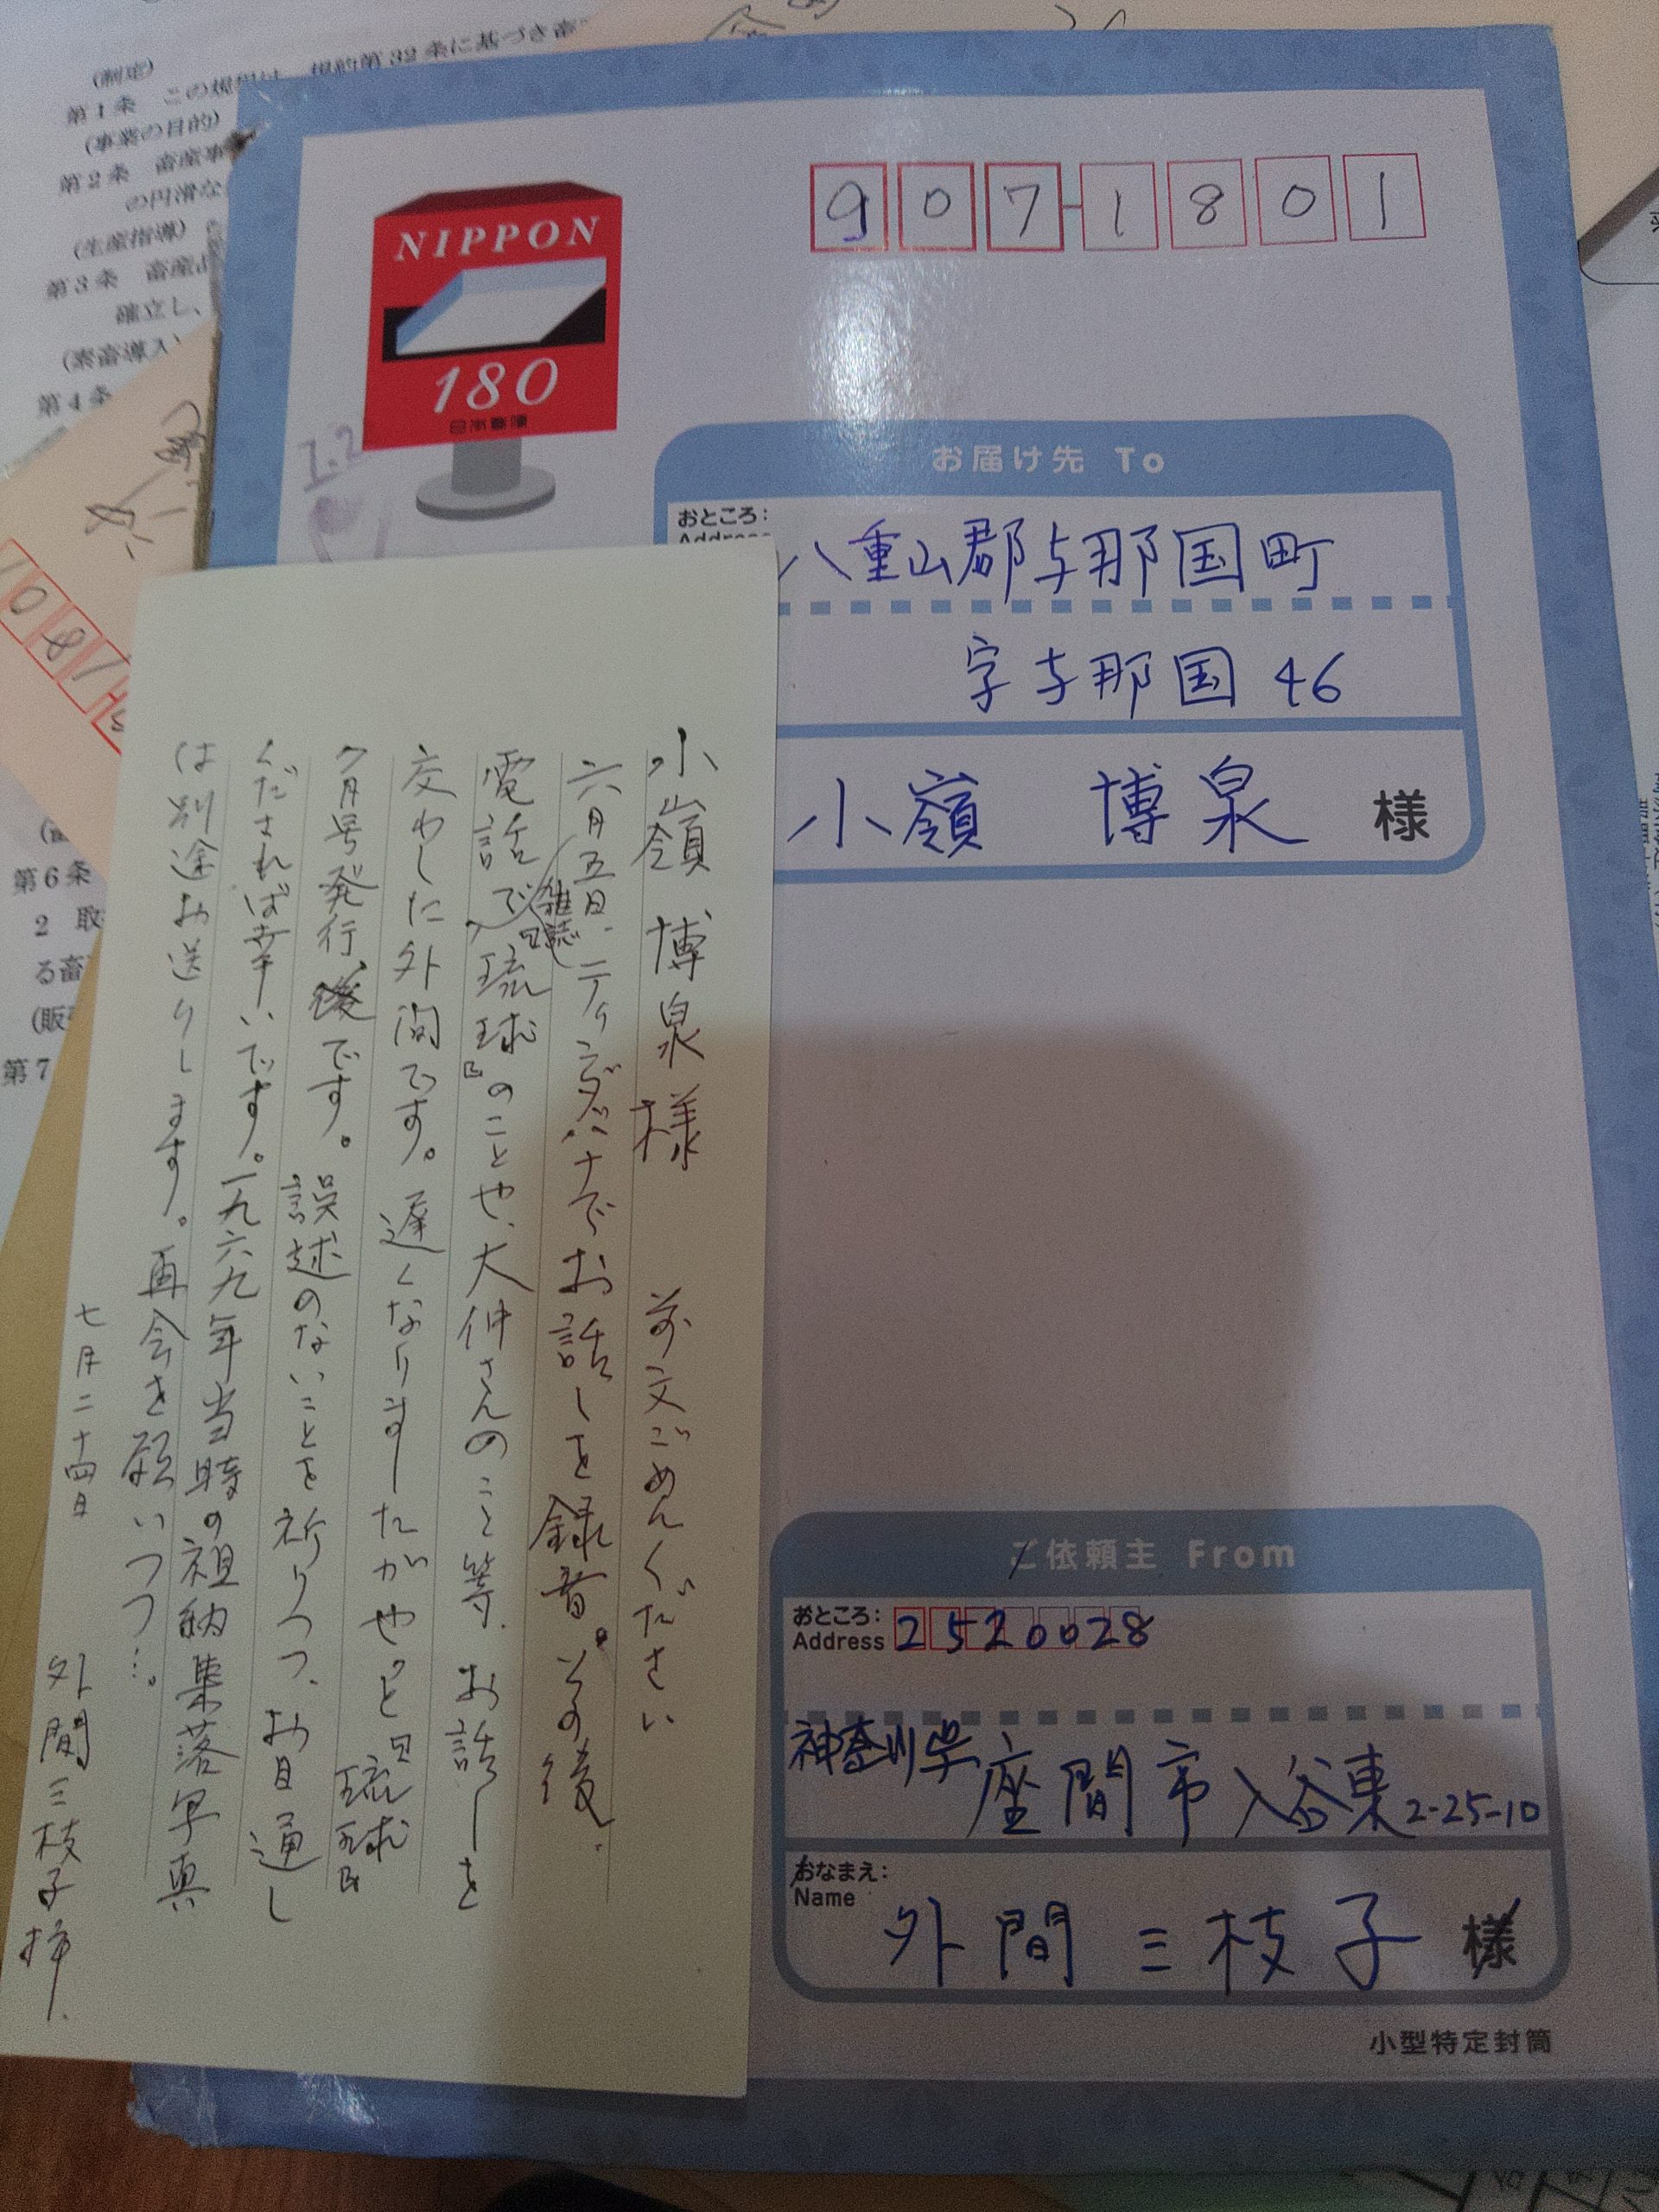 (制定)
第1条 この規程は、規約第32条に基づき畜
(事業の目的)
第2条 畜産事
の円滑な
(生産指導)
第3条 畜産
確立し、
(素畜導入)
第4条
第6条
2 取
る畜
(販
第7
NIPPON
180
日本郵便
907-1801
お届け先 To
おところ:
Address
八重山郡与那国町
字与那国46
小嶺 博泉 様
小嶺 博泉様 前文ごめんください
六月五日、ティダバナでお話しを録音。その後、
電話で、雑誌『琉球』のことや、大仲さんのこと等、お話しを
交わした外間です。遅くなりましたがやっと『琉球』
7月号発行です。誤述のないことを祈りつつ、お目通し
くだされば幸いです。一九六九年当時の祖納集落写真
は別途お送りします。再会を願いつつ…。
七月二十四日 外間三枝子拝.
ご依頼主 From
おところ:
Address
2520028
神奈川県座間市入谷東2-25-10
おなまえ:
Name
外間三枝子 様
小型特定封筒